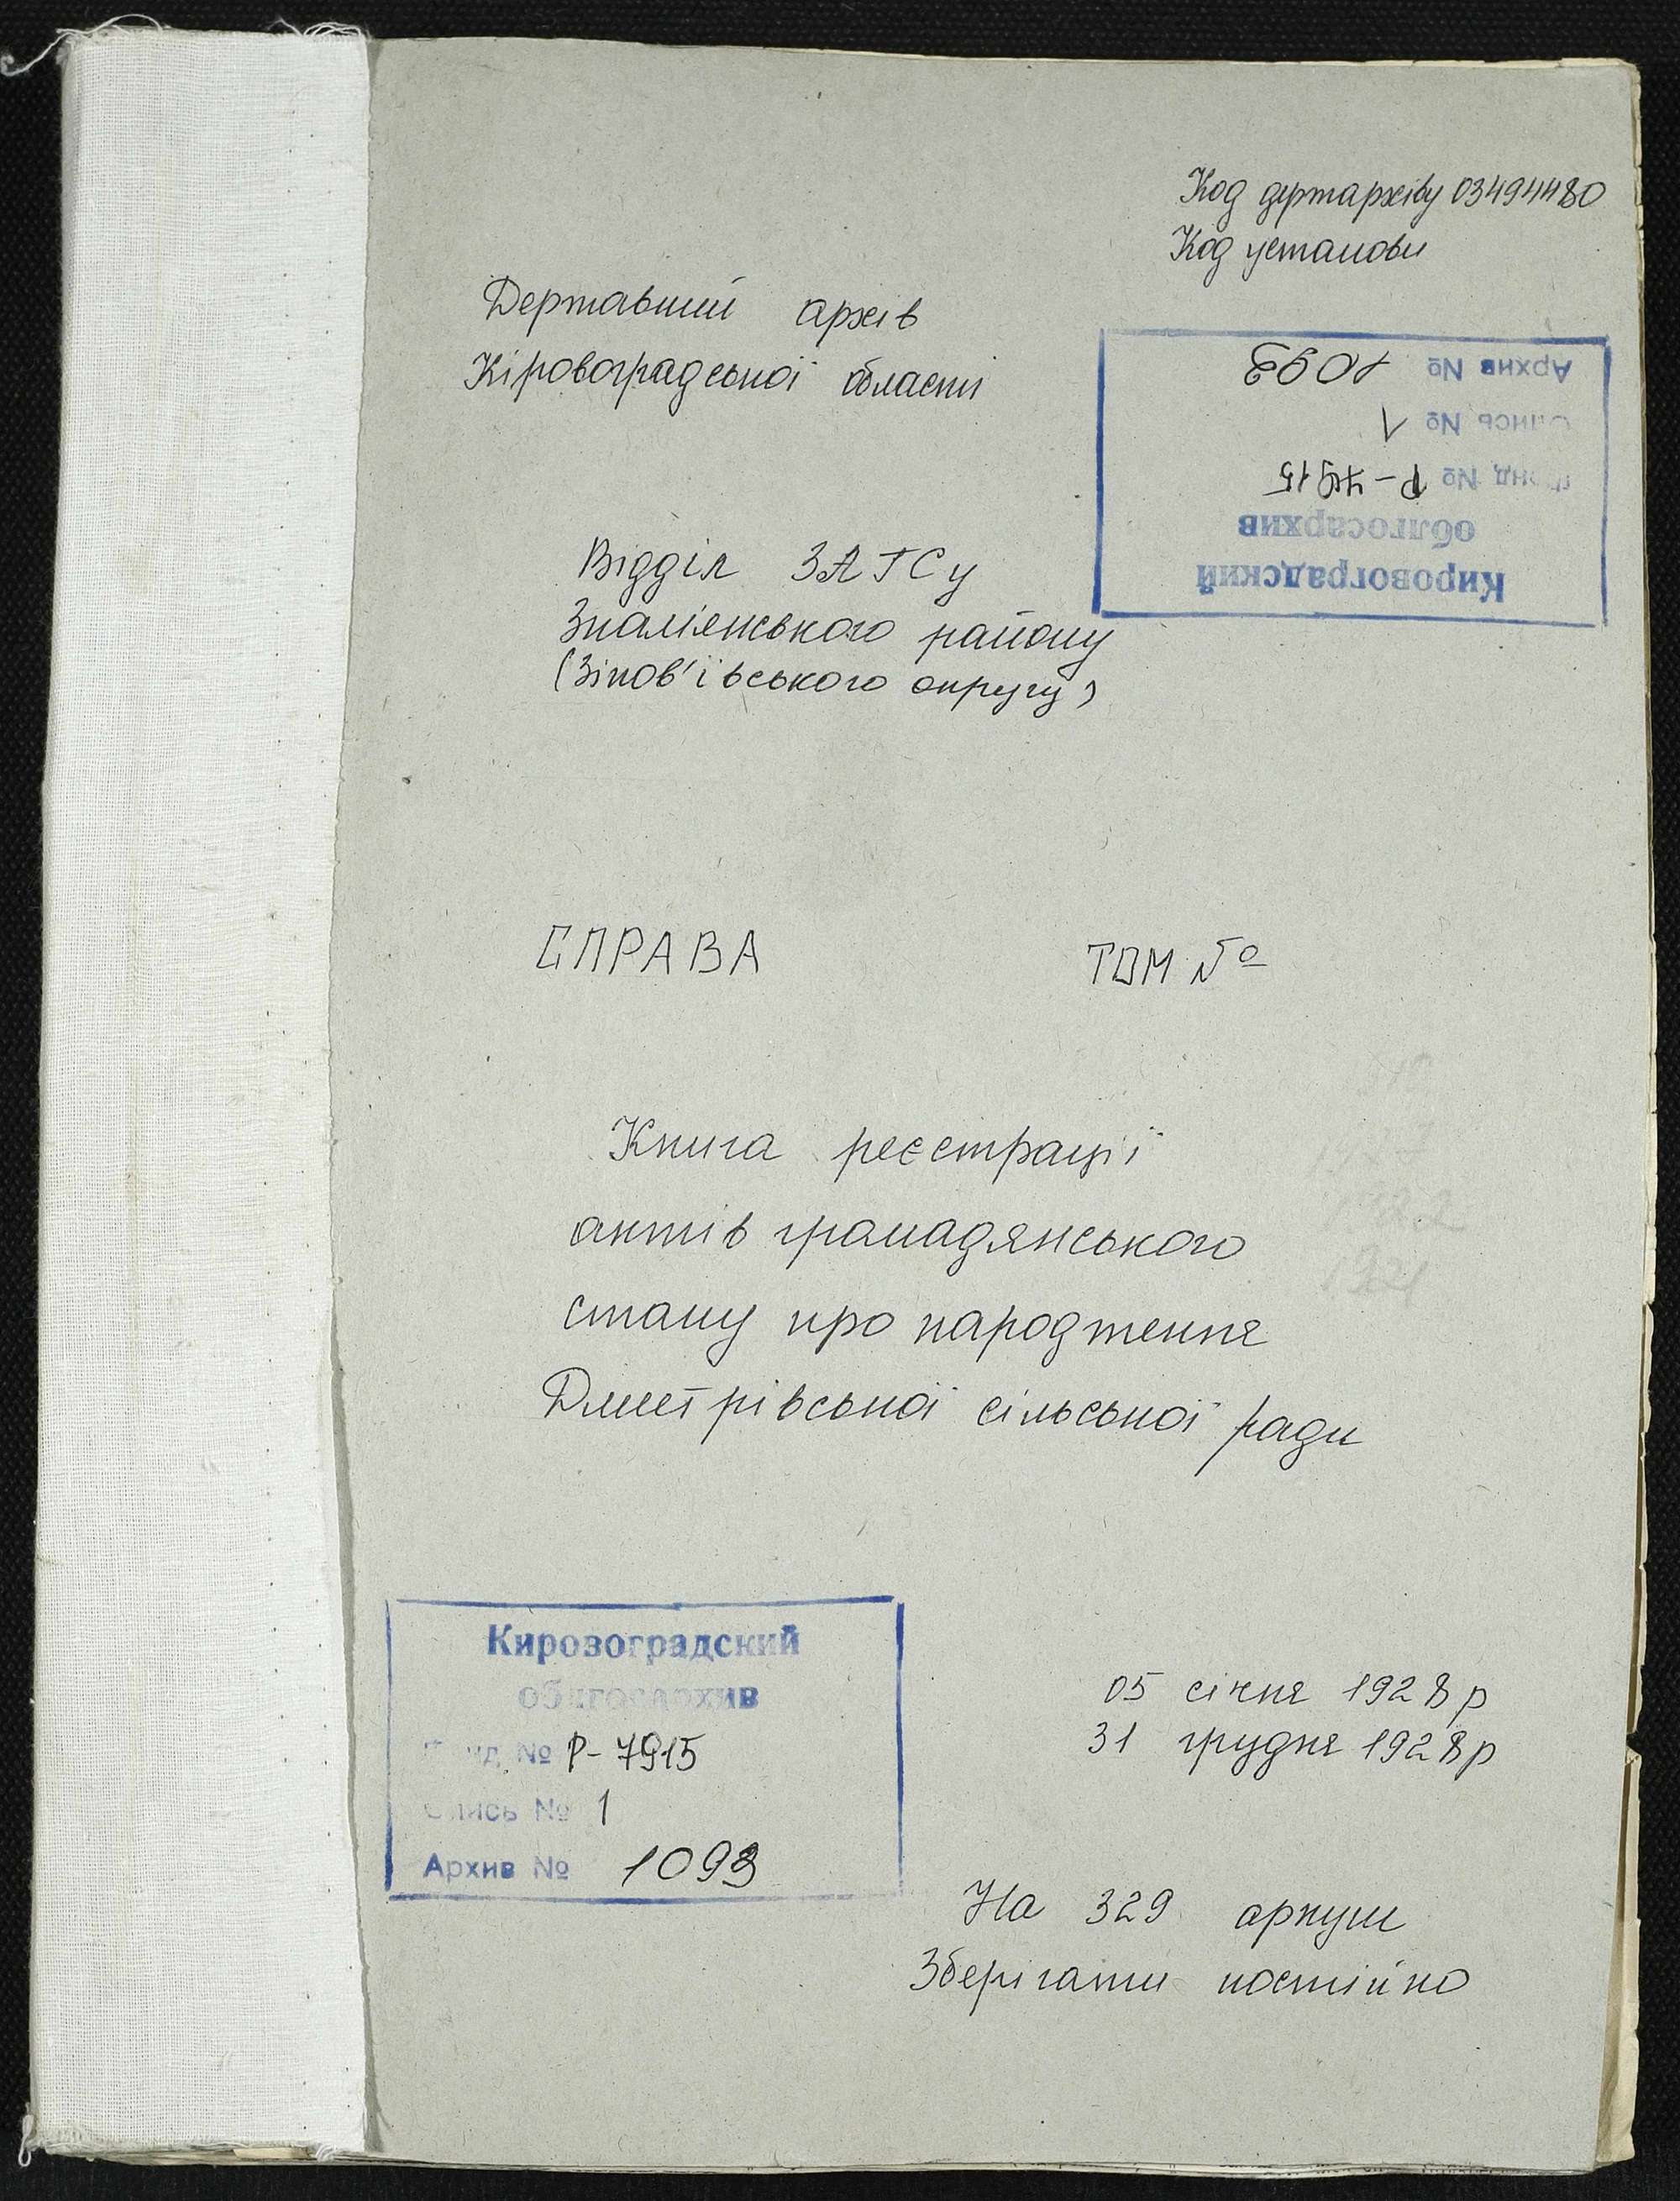 Код держархіву 03494480
Код установи
Державний архів
Кіровоградської області
Кировоградский
облгосархив
Фонд № Р-7915
Опись № 1
Архив № 1093
Відділ ЗАГСу
Знам'янського району
(Зінов'ївського округу)
СПРАВА ТОМ №
Книга реєстрації
актів громадянського
стану про народження
Дмитрівської сільської ради
Кировоградский
облгосархив
Фонд № Р-7915
Опись № 1
Архив № 1093
05 січня 1928 р
31 грудня 1928 р
На 329 аркуш
Зберігати постійно